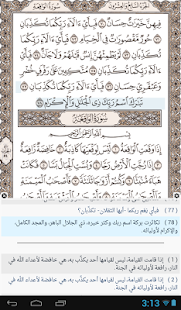 فِيهِنَّ خَيْرَٰتٌ حِسَانٌ ٧٠ فَبِأَيِّ ءَالَآءِ رَبِّكُمَا تُكَذِّبَانِ ٧١
حُورٌ مَّقْصُورَٰتٌ فِي ٱلْخِيَامِ ٧٢ فَبِأَيِّ ءَالَآءِ رَبِّكُمَا
تُكَذِّبَانِ ٧٣ لَمْ يَطْمِثْهُنَّ إِنسٌ قَبْلَهُمْ وَلَا جَآنٌّ ٧٤ فَبِأَيِّ ءَالَآءِ
رَبِّكُمَا تُكَذِّبَانِ ٧٥ مُتَّكِـِٔينَ عَلَىٰ رَفْرَفٍ خُضْرٍ
وَعَبْقَرِيٍّ حِسَانٍ ٧٦ فَبِأَيِّ ءَالَآءِ رَبِّكُمَا تُكَذِّبَانِ ٧٧
تَبَٰرَكَ ٱسْمُ رَبِّكَ ذِي ٱلْجَلَٰلِ وَٱلْإِكْرَامِ ٧٨
سُورَةُ الوَاقِعَةِ
بِسْمِ ٱللَّهِ ٱلرَّحْمَٰنِ ٱلرَّحِيمِ
إِذَا وَقَعَتِ ٱلْوَاقِعَةُ ١ لَيْسَ لِوَقْعَتِهَا كَاذِبَةٌ ٢ خَافِضَةٌ رَّافِعَةٌ ٣
إِذَا رُجَّتِ ٱلْأَرْضُ رَجًّا ٤ وَبُسَّتِ ٱلْجِبَالُ بَسًّا ٥ فَكَانَتْ هَبَآءً
مُّنۢبَثًّا ٦ وَكُنتُمْ أَزْوَٰجًا ثَلَٰثَةً ٧ فَأَصْحَٰبُ ٱلْمَيْمَنَةِ مَآ أَصْحَٰبُ
[77] فبأي نعم ربكما -أيها الثقلان- تكذِّبان؟
[78] تكاثرت بركة اسم ربك وكثر خيره، ذي الجلال الباهر، والمجد الكامل، والإكرام لأوليائه
(1) إذا قامت القيامة، ليس لقيامها أحد يكذِّب به، هي خافضة لأعداء الله في النار، رافعة لأوليائه في الجنة
(2) إذا قامت القيامة، ليس لقيامها أحد يكذِّب به، هي خافضة لأعداء الله في النار، رافعة لأوليائه في الجنة
3:13